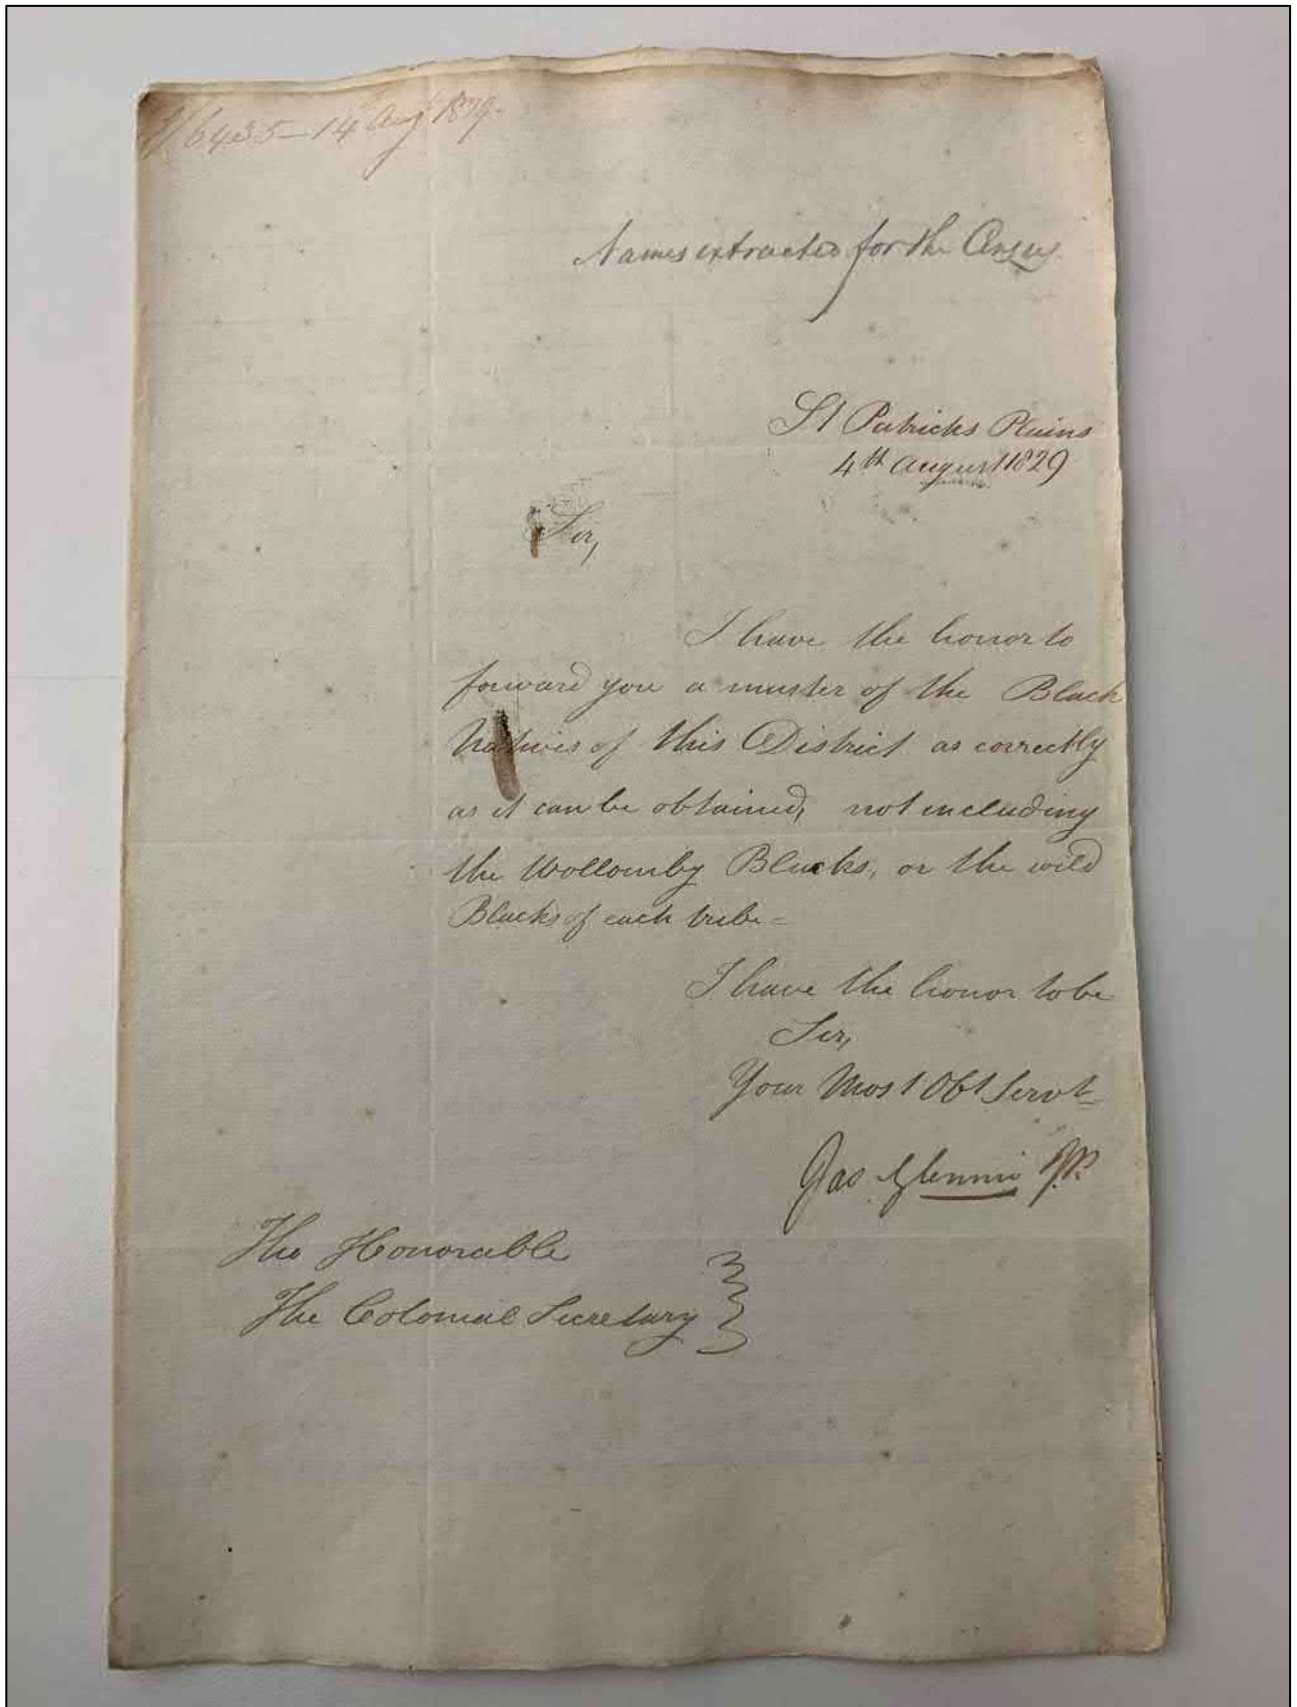 6435 — 14 Augt 1829.
Names extracted for the Census
St Patricks Plains
4th August 1829
Sir,
I have the honor to
forward you a muster of the Black
Natives of this District as correctly
as it can be obtained, not including
the Wollomby Blacks, or the wild
Blacks of each tribe =
I have the honor to be
Sir,
Your Most Obt Servt
Jas Glennie J.P.
The Honorable
The Colonial Secretary